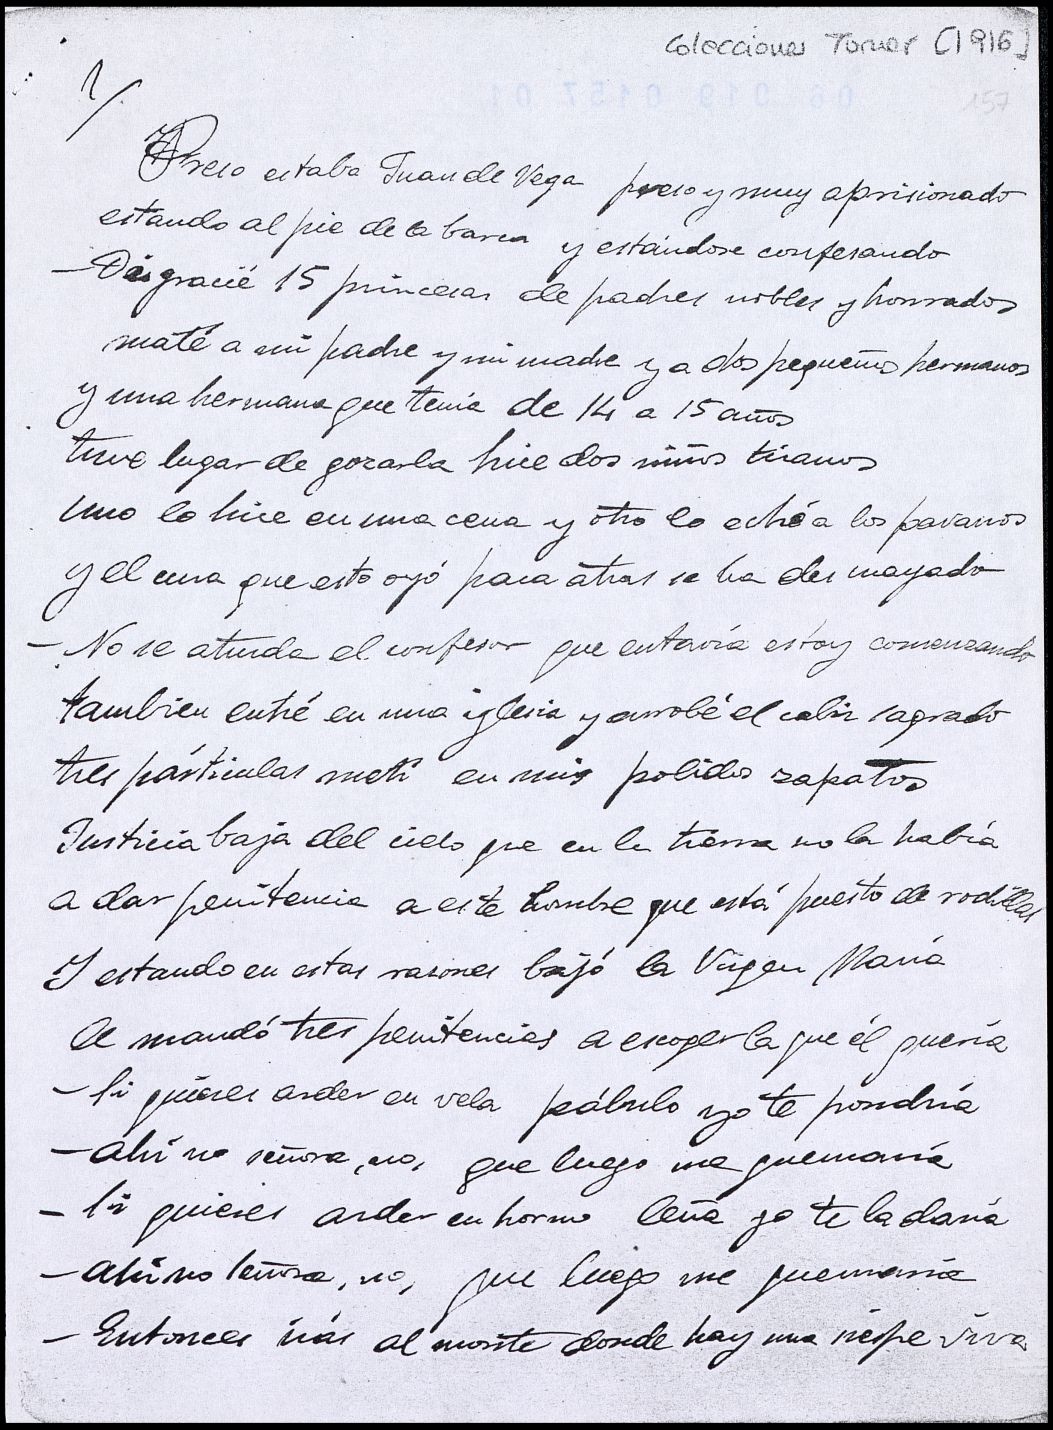 Colecciones Torner [1916]
157
1/
Preso estaba Juan de Vega preso y muy aprisionado
estando al pie de la barca y estándose confesando
- Desgracié 15 princesas de padres nobles y honrados
maté a mi padre y mi madre y a dos pequeños hermanos
y una hermana que tenía de 14 a 15 años
tuve lugar de gozarla hice dos niños tiranos
uno lo hice en una cena y otro lo eché a los pavanos
y el cura que esto oyó para atras se ha desmayado
- No se aturda el confesor que entavía estoy comenzando
tambien entré en una iglesia y arrobé el caliz sagrado
tres párticulas metí en mis polidos zapatos
Justicia baja del cielo que en la tierra no la había
a dar penitencia a este hombre que está puesto de rodillas
Y estando en estas razones bajó la Virgen María
le mandó tres penitencias a escoger la que él quería
- Si quieres arder en vela pábulo yo te pondría
- Ahí no señora, no, que luego me quemaría
- Si quieres arder en horno leña yo te la daría
- Ahí no señora, no, que luego me quemaría
- Entonces irás al monte donde hay una sierpe viva